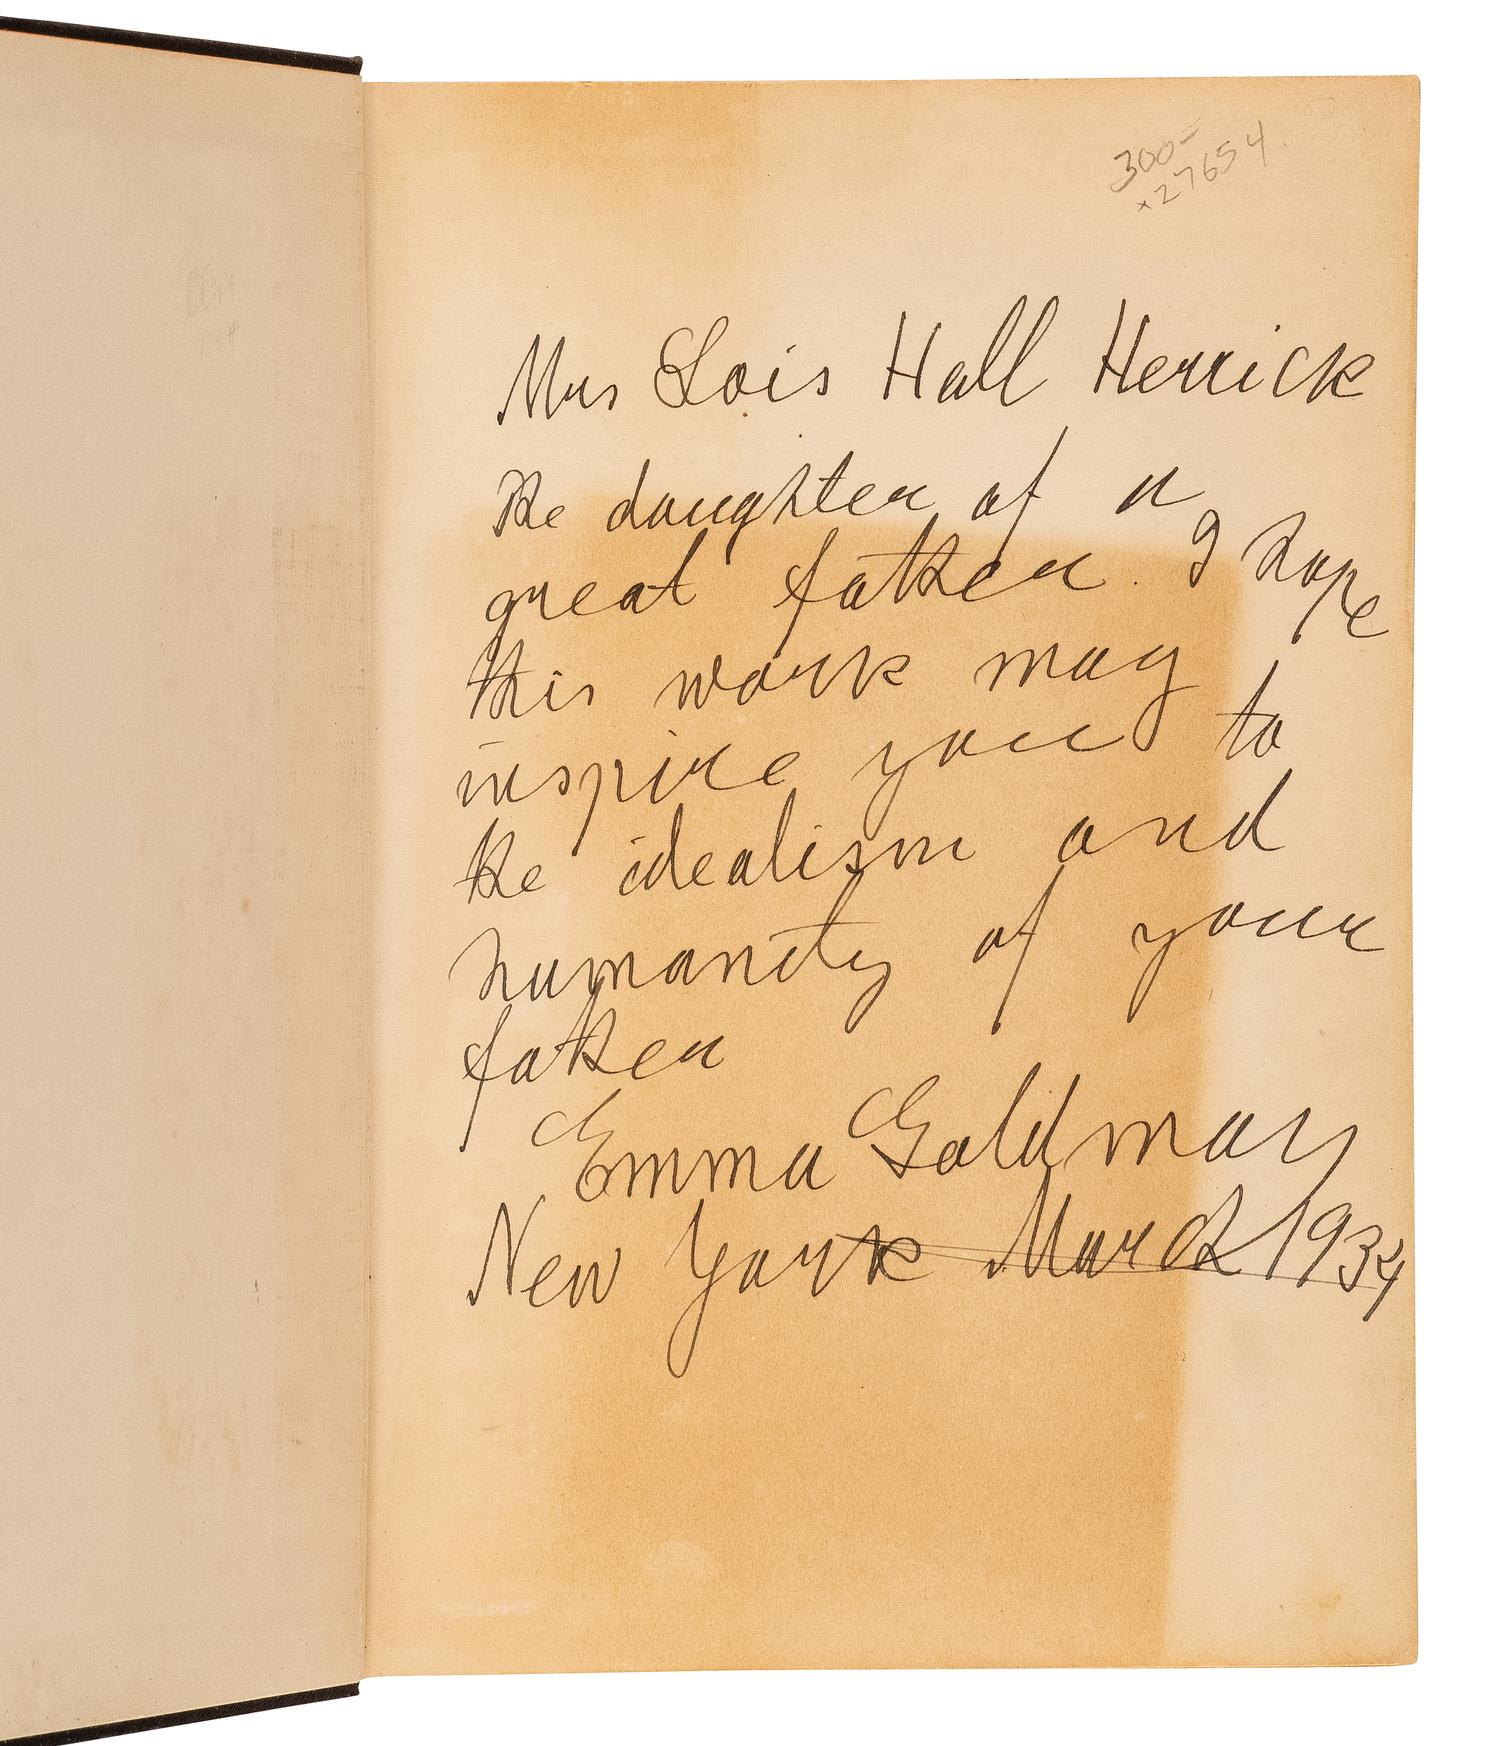 300-
x27654
Mrs Lois Hall Herrick
the daughter of a
great father. I hope
this work may
inspire you to
the idealism and
humanity of your
father
Emma Goldman
New York March 1934